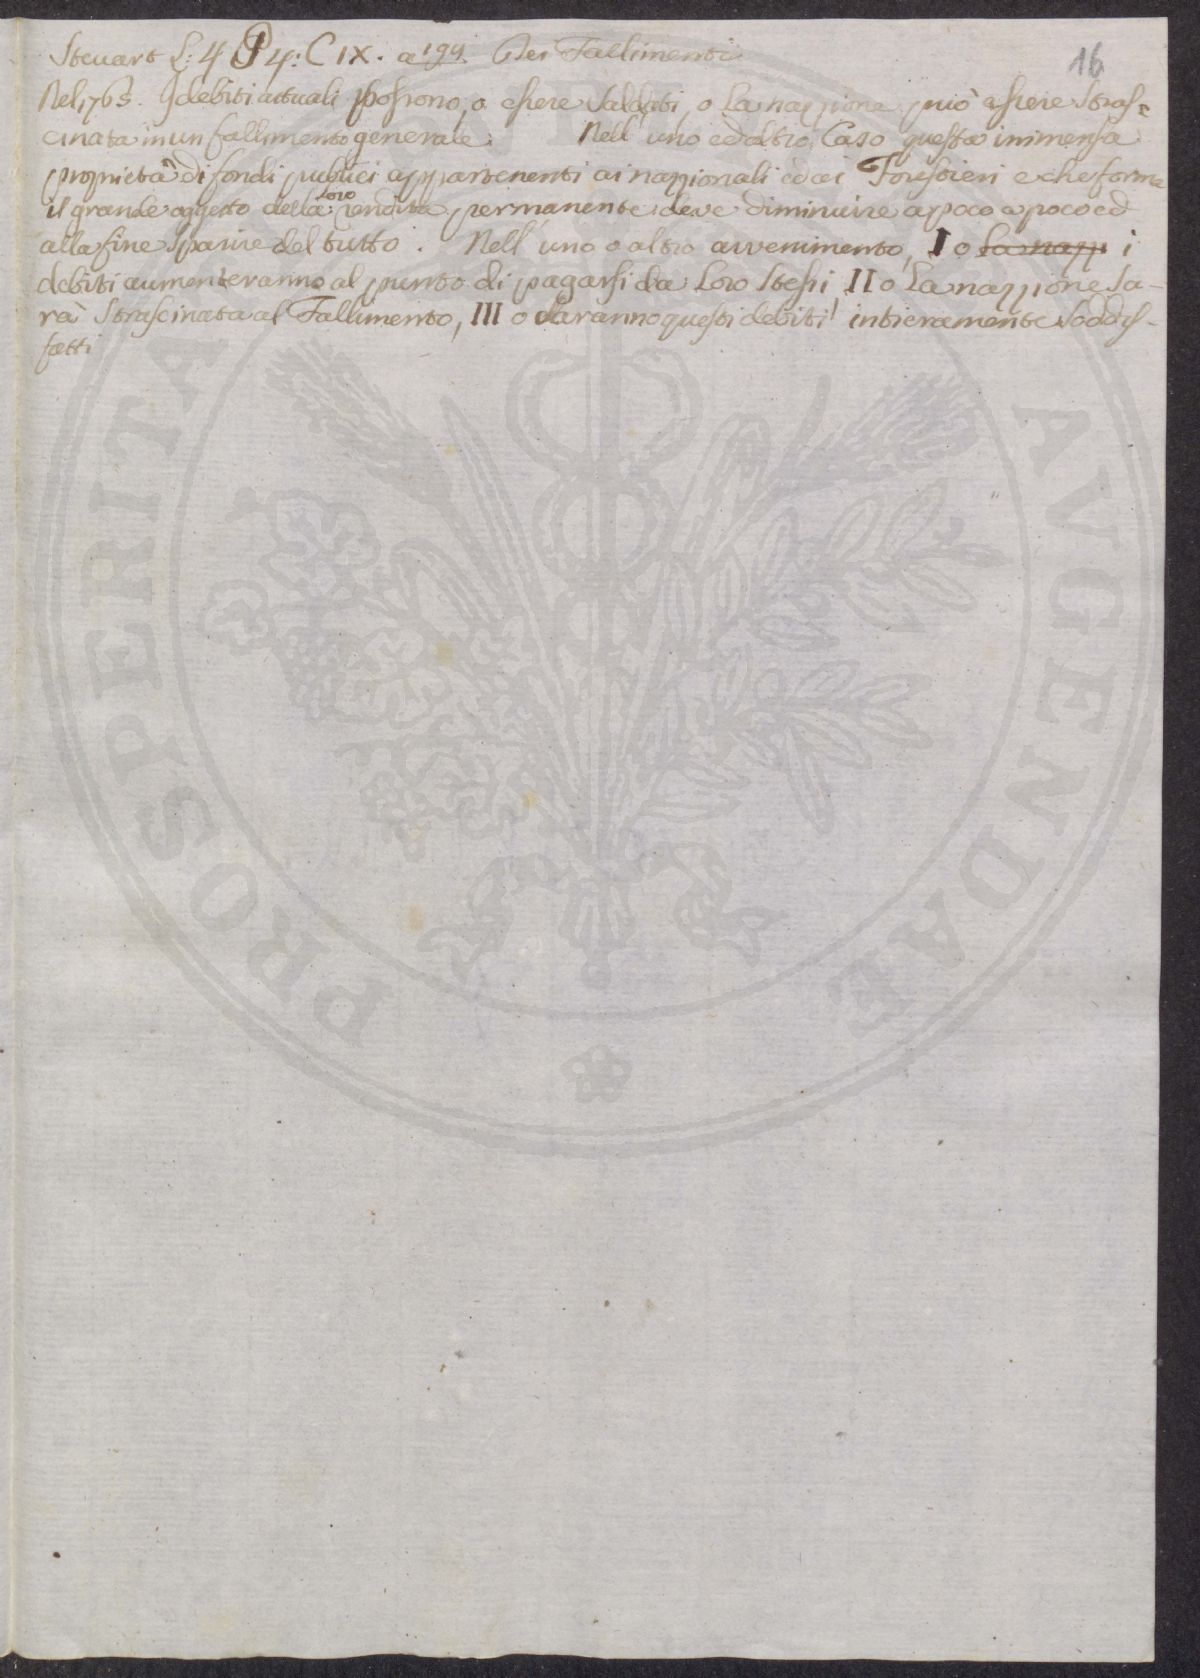 16
Steuart L: 4 P 4: C IX. a 199. Dei Fallimenti
Nel 1765. I debiti attuali possono, o essere saldati, o la nazzione può essere stras-
cinata in un fallimento generale. Nell' uno ed altro Caso questa immensa
proprietà di fondi publici appartenenti ai nazzionali ed ai Forestieri e che forma
il grande oggetto della loro vendita permanente deve diminuire a poco a poco ed
alla fine sparire del tutto. Nell' uno o altro avvenimento, I o la nazz i
debiti aumenteranno al punto di pagarsi da loro stessi II o la nazzione sa-
rà strascinata al Fallimento, III o saranno questi debiti intieramente soddis-
fatti
PROSPERITA AVGENDAE